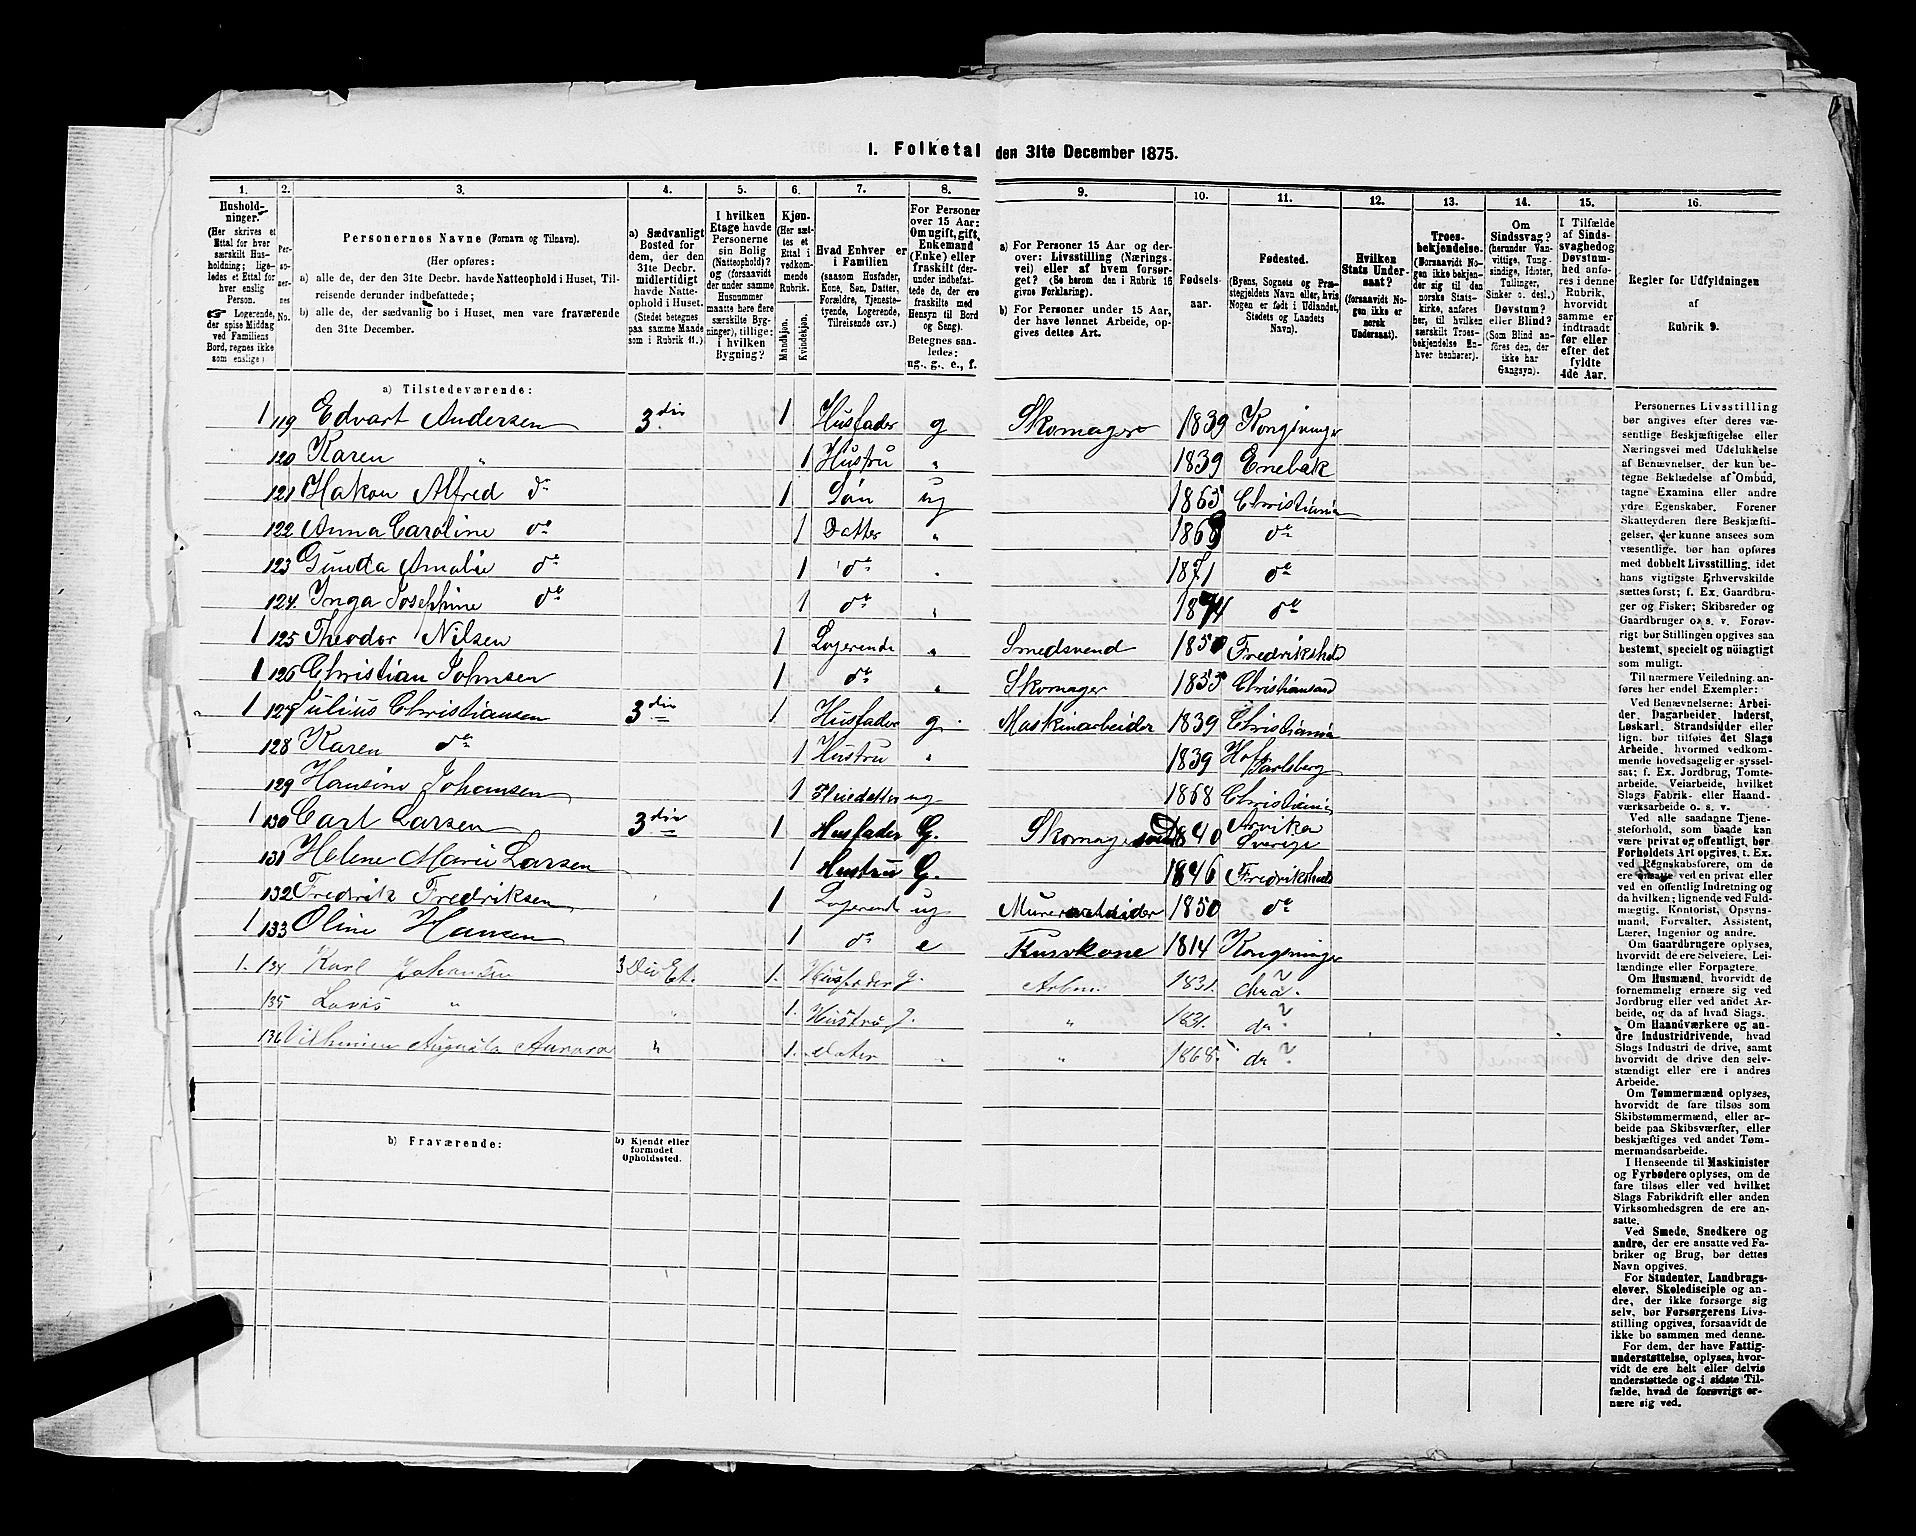 1. Folketal den 31te December 1875.
1. 2. 3. 4. 5. 6. 7. 8. 9. 10. 11. 12. 13. 14. 15. 16.
Husholdninger. (Her skrives et Ettal for hver særskilt Husholdning; ligeledes et Ettal for hver enslig Person. Logerende, der spise Middag ved Familiens Bord, regnes ikke som enslige.)
Personernes No.
Personernes Navne (Fornavn og Tilnavn).
(Her opføres:
a) alle de, der den 31te Decbr. havde Natteophold i Huset, Tilreisende derunder indbefattede;
b) alle de, der sædvanlig bo i Huset, men vare fraværende den 31te December.
a) Sædvanligt Bosted for dem, der den 31te Decbr. midlertidigt havde Natteophold i Huset. (Stedet betegnes paa samme Maade som i Rubrik 11.)
I hvilken Etage havde Personerne sin Bolig (Natteophold)? og (forsaavidt der under samme Husnummer maatte høre flere særskilte Bygninger), tillige: i hvilken Bygning?
Kjøn. (Her sættes et Ettal i vedkommende Rubrik.
Mandkjøn. Kvindekjøn.
Hvad Enhver er i Familien (saasom Husfader, Kone, Søn, Datter, Forældre, Tjenestetyende, Logerende, Tilreisende osv.)
For Personer over 15 Aar: Om ugift, gift, Enkemand (Enke) eller fraskilt (derunder indbefattede de, der ere fraskilte med Hensyn til Bord og Seng). Betegnes saaledes: ug., g., e., f.
a) For Personer 15 Aar og derover: Livsstilling (Næringsvei) eller af hvem forsørget? (Se herom den i Rubrik 16 givne Forklaring).
b) For Personer under 15 Aar, der have lønnet Arbeide, opgives dettes Art.
Fødselsaar.
Fødested. (Byens, Sognets og Præstegjeldets Navn eller, hvis Nogen er født i Udlandet, Stedets og Landets Navn).
Hvilken Stats Undersaat? (forsaavidt Nogen ikke er norsk Undersaat).
Troesbekjendelse. (Forsaavidt Nogen ikke bekjender sig til den norske Statskirke, anføres her, til hvilken særskilt Troesbekjendelse Enhver henhører).
Om Sindssvag? (herunder Vanvittige, Tungsindige, Idioter, Tullinger, Sinker o. desl.) Døvstum? eller Blind? (Som Blind anføres den, der ikke har Gangsyn).
I Tilfælde af Sindssvaghed og Døvstumhed anføres i denne Rubrik, hvorvidt samme er indtraadt før eller efter det fyldte 4de Aar.
Regler for Udfyldningen af Rubrik 9.
a) Tilstedeværende:
1 119 Edvart Andersen 3 div 1 Husfader g Skomager 1839 Kongsvinger
120 Karen " 1 Hustru " 1839 Enebak
121 Hakon Alfred do 1 Søn ug 1865 Christiania
122 Anna Caroline do 1 Datter " 1868 do
123 Gunda Amalie do 1 do " 1871 do
124 Inga Josephine do 1 do " 1874 do
1 125 Theodor Nilsen 1 Logerende " Smedsvend 1850 Fredrikshald
1 126 Christian Johnsen 1 do " Skomager 1855 Christiansand
1 127 Julius Christiansen 3 div 1 Husfader g Maskinarbeider 1839 Christiania
128 Karen do 1 Hustru " 1839 Hof Jarlsberg
129 Hansine Johansen 1 Pleiedatter ug 1868 Christiania
1 130 Carl Larsen 3 div 1 Husfader G. Skomagersvend 1840 Arvika Sverige
131 Helene Marie Larsen 1 Hustru G. 1846 Fredrikshald
132 Fredrik Fredriksen 1 Logerende ug Murerarbeider 1850 do
1 133 Oline Hansen 1 do e 1814 Kongsvinger
1. 134 Karl Johansen 3 Div Et. 1. Husfader g. Arbm 1831. Chra?
135 Lovis " " 1. Hustru g. " 1831. do?
136 Vilhelmine Augusta Aurora " 1. Dater " 1868. do?
b) Fraværende:
b) Kjendt eller formodet Opholdssted.
Personernes Livsstilling
bør angives efter deres væ-
sentlige Beskjæftigelse eller
Næringsvei med Udelukkelse
af Benævnelser, der kun be-
tegne Beklædelse af Ombud,
tagne Examina eller andre
ydre Egenskaber. Forener
Skatteyderen flere Beskjæfti-
gelser, der kunne ansees som
væsentlige, bør han opføres
med dobbelt Livsstilling, idet
hans vigtigste Erhvervskilde
sættes først; f. Ex. Gaardbru-
ger og Fisker; Skibsreder og
Gaardbruger o. s. v. Forøv-
rigt bør Stillingen opgives saa
bestemt, specielt og nøiagtigt
som muligt.
Til nærmere Veiledning an-
føres her endel Exempler:
Ved Benævnelserne: Arbei-
der, Dagarbeider, Inderst,
Løskarl, Strandsidder eller
lign. bør tilføies det Slags
Arbeide, hvormed vedkom-
mende hovedsagelig er syssel-
sat; f. Ex. Jordbrug, Tomte-
arbeide, Veiarbeide, hvilket
Slags Fabrik- eller Haand-
værksarbeide o. s. v.
Ved alle saadanne Tjene-
steforhold, som baade kan
være privat og offentligt, bør
Forholdets Art opgives, t. Ex.
ved Regnskabsførere, om de
ere ansatte ved en privat eller
ved en offentlig Indretning og
da hvilken; lignende ved Fuld-
mægtig, Kontorist, Opsyns-
mand, Forvalter, Assistent,
Lærer, Ingeniør og andre.
Om Gaardbrugere oplyses,
hvorvidt de ere Selveiere, Lei-
lændinge eller Forpagtere.
Om Husmænd, hvorvidt de
fornemmelig ernære sig ved
Jordbrug eller ved andet Ar-
beide, og da af hvad Slags.
Om Haandværkere og an-
dre Industridrivende, hvad
Slags Industri de drive, samt
hvorvidt de drive den selv-
stændigt eller ere i andres
Arbeide.
Om Tømmermænd oplyses,
hvorvidt de fare tilsøs som
Skibstømmermænd, eller ar-
beide paa Skibsværfter, eller
beskjæftiges ved andet Tøm-
mermandsarbeide.
I Henseende til Maskinister
og Fyrbødere oplyses, om de
fare tilsøs eller ved hvilket
Slags Fabrikdrift eller anden
Virksomhedsgren de ere an-
satte.
Ved Smede, Snedkere og
andre, der ere ansatte ved Fa-
briker og Brug, bør dettes
Navn opgives.
For Studenter, Landbrugs-
elever, Skoledisciple og an-
dre, der ikke forsørge sig
selv, bør Forsørgerens Livs-
stilling opgives, forsaavidt de
ikke bo sammen med denne.
For dem, der have Fattig-
understøttelse, oplyses, hvor-
vidt de ere helt eller delvis
understøttede og i sidste Til-
fælde, hvad de forøvrigt er-
nære sig ved.